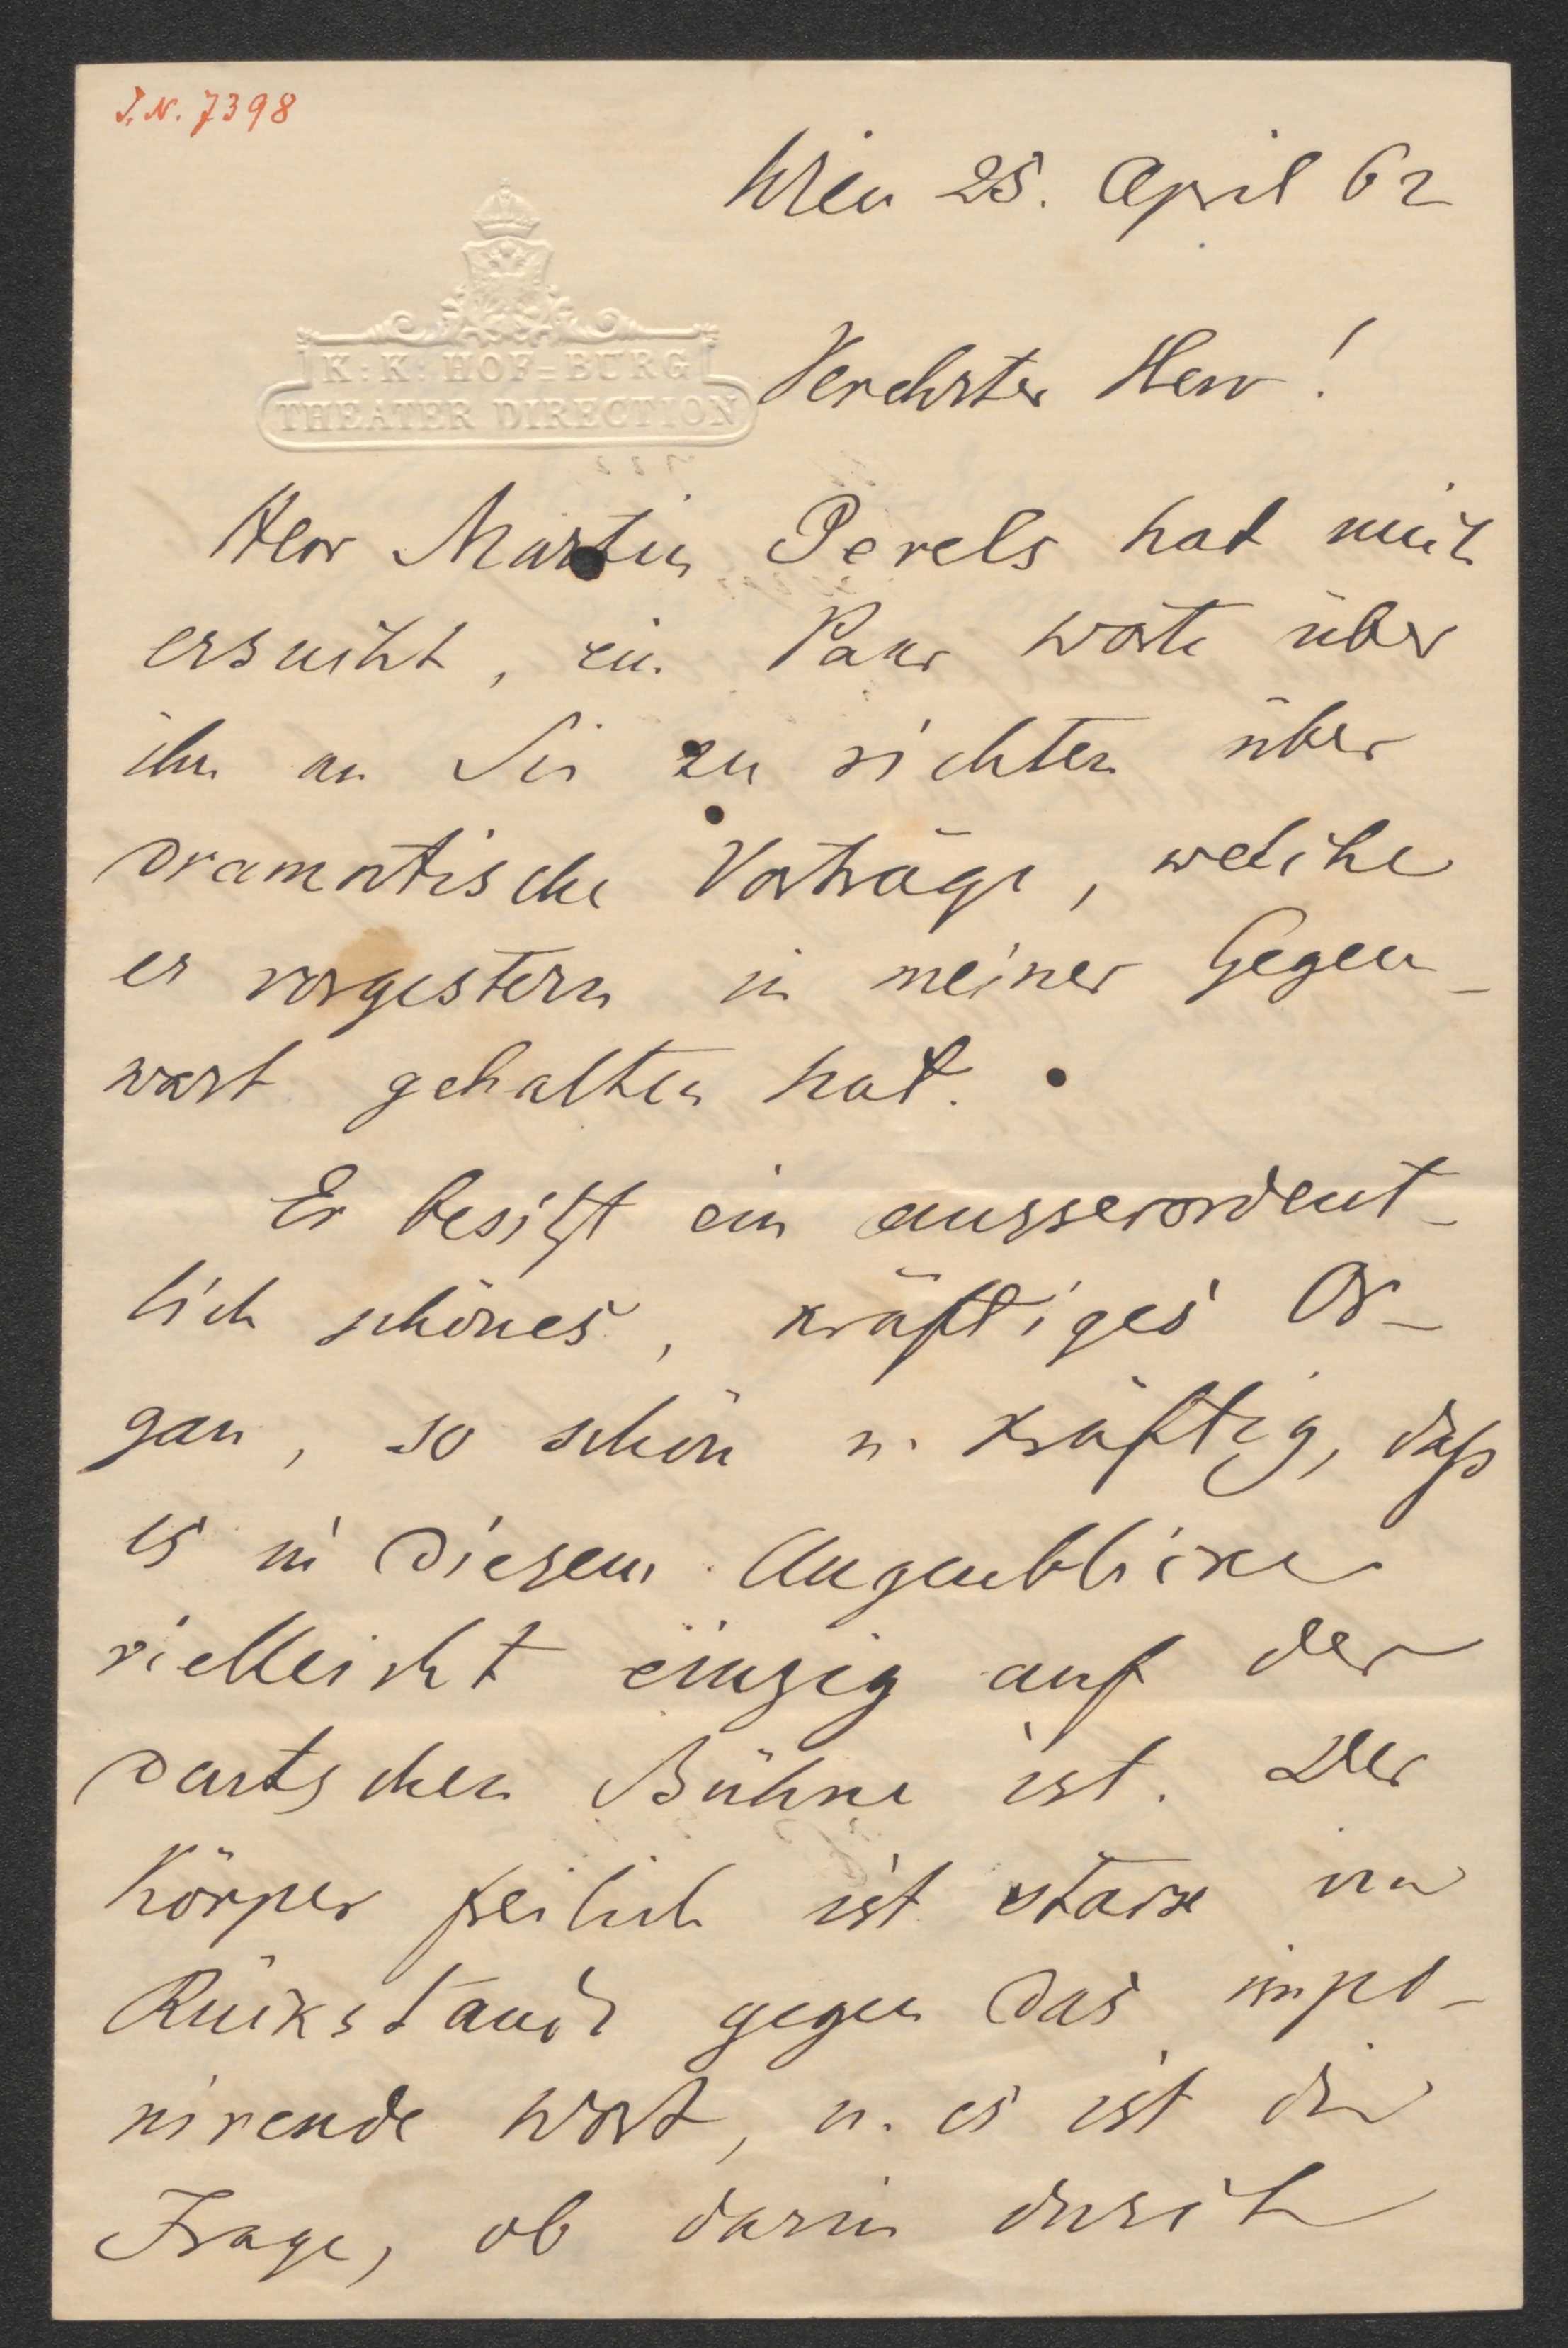 I. N. 7398
Wien 25. April 62
K: K: HOF=BURG
THEATER DIRECTION
Verehrter Herr!
Herr Martin Perels hat mich
ersucht, ein Paar Worte über
ihn an Sie zu richten über
dramatische Vorträge, welche
er vorgestern in meiner Gegen-
wart gehalten hat.
Er besitzt ein ausserordent-
lich schönes, kräftiges Or-
gan, so schön u. kräftig, daß
es in diesem Augenblicke
vielleicht einzig auf der
deutschen Bühne ist. Der
Körper freilich ist stark im
Rückstand gegen das impo-
nirende Wort, u. es ist die
Frage, ob darin durch